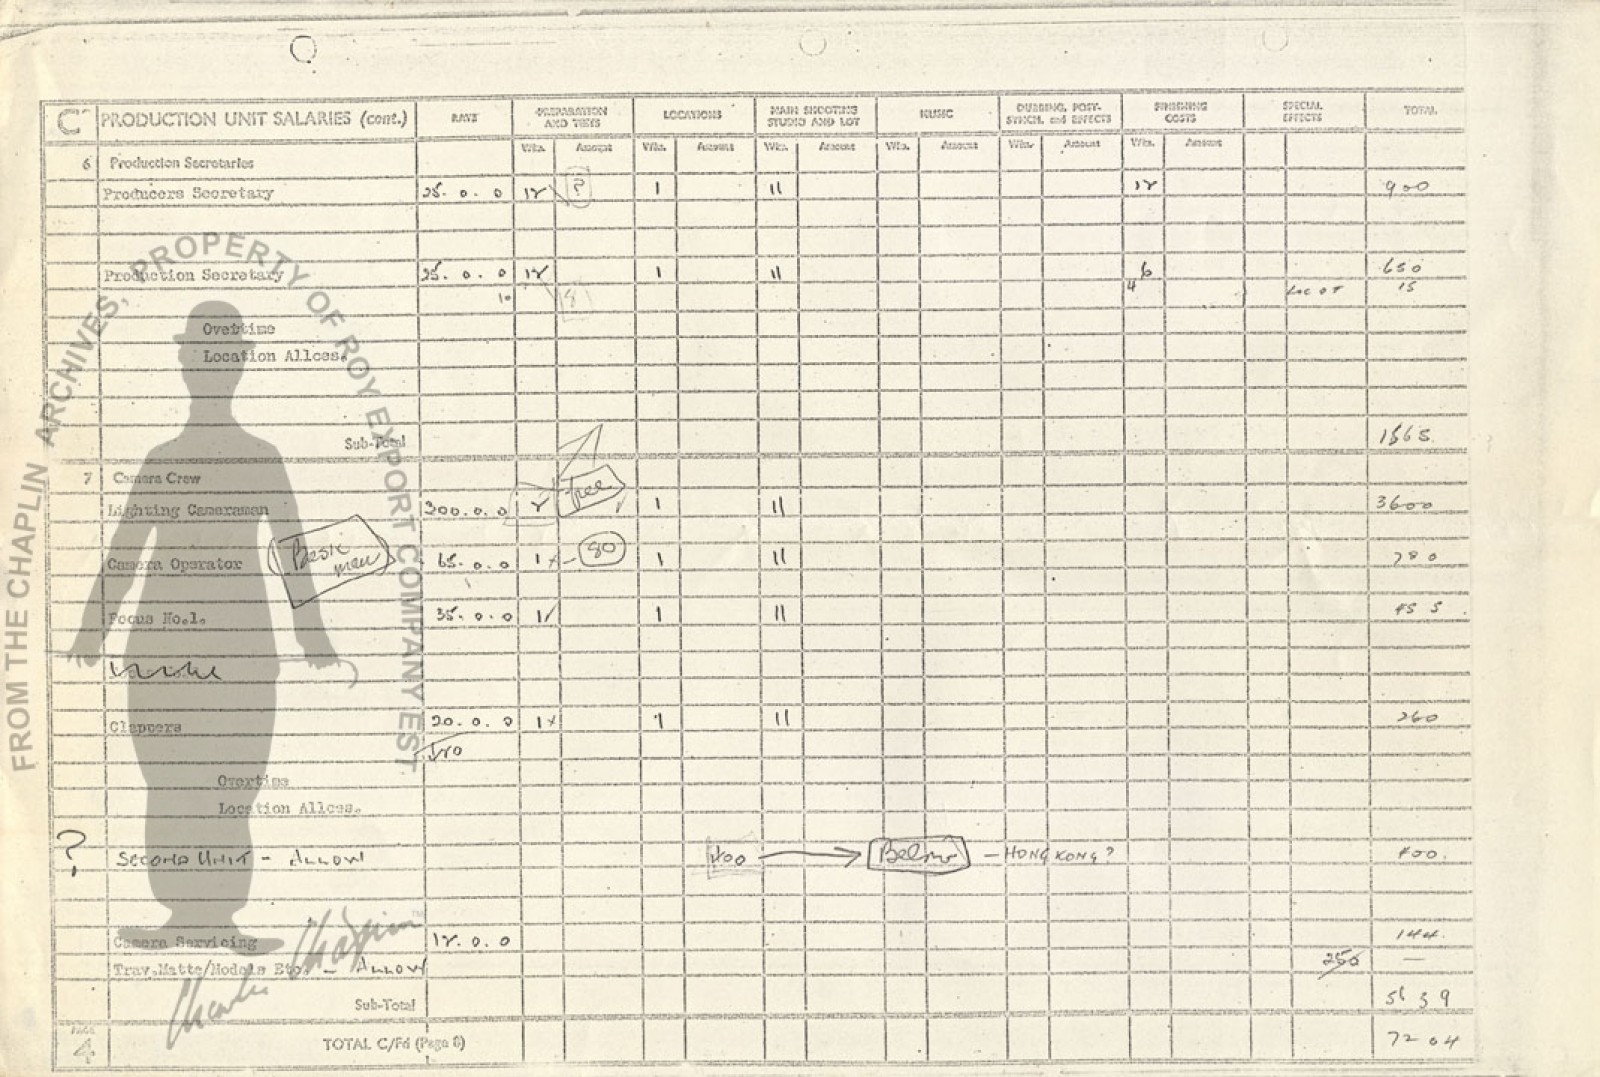 C PRODUCTION UNIT SALARIES (cont.) RATE PREPARATION AND TESTS LOCATIONS MAIN SHOOTING STUDIO AND LOT MUSIC DUBBING, POST-SYNCH. and EFFECTS FINISHING COSTS SPECIAL EFFECTS TOTAL
Wks. Amount Wks. Amount Wks. Amount Wks. Amount Wks. Amount Wks. Amount
6 Production Secretaries
Producers Secretary 25. 0. 0 12 ? 1 11 12 900
Production Secretary 25. 0. 0 12 1 11 6 650
10 8 4 LOC OT 15
Overtime
Location Allces.
Sub-Total 1565
7 Camera Crew
Lighting Cameraman 300. 0. 0 2 Free 1 11 3600
Camera Operator Basic men 65. 0. 0 1 80 1 11 780
Focus No.1. 35. 0. 0 1 1 11 455
Clappers 20. 0. 0 1 1 11 260
Overtime
Location Allces.
? SECOND UNIT - ALLOW 400 Below - HONG KONG? 400.
Camera Servicing 12. 0. 0 144.
Trav.Matte/Models Etc. - ALLOW 250 —
Sub-Total 5639
PAGE 4 TOTAL C/Fd (Page 8) 7204
FROM THE CHAPLIN ARCHIVES, PROPERTY OF ROY EXPORT COMPANY EST
Charlie Chaplin